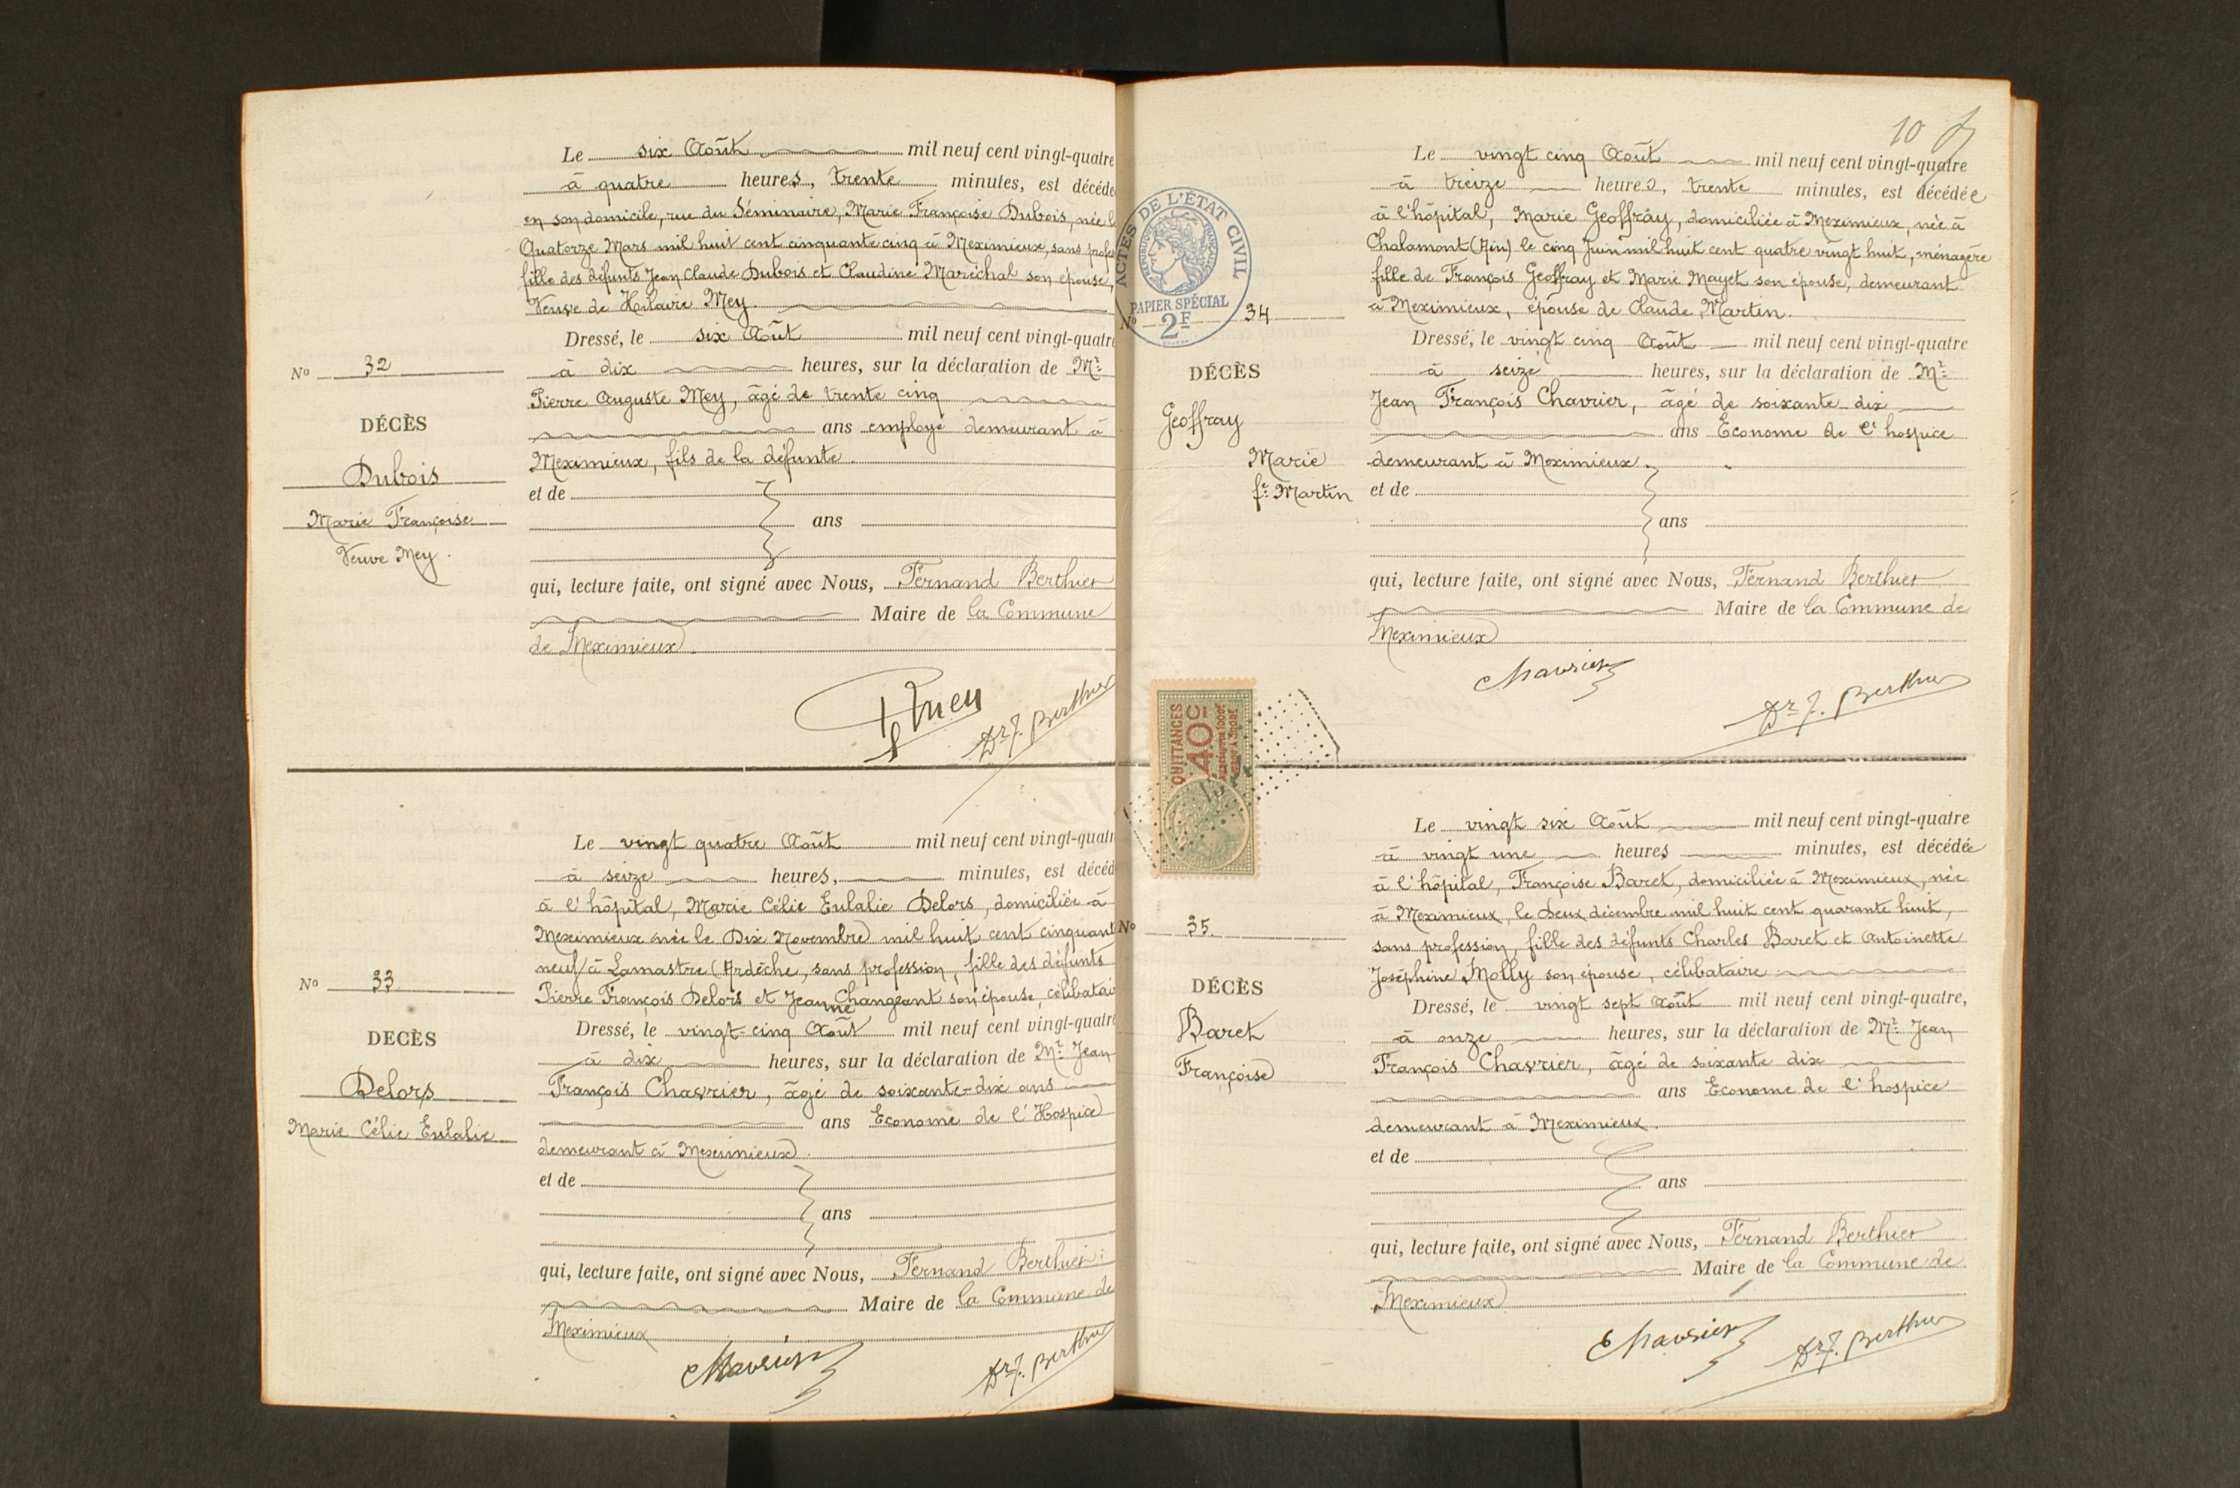 Le six Août mil neuf cent vingt-quatre
à quatre heures, trente minutes, est décédé
en son domicile, rue du Séminaire, Marie Françoise Dubois, née l
Quatorze Mars mil huit cent cinquante cinq à Meximieux, sans profes
fille des défunts Jean Claude Dubois et Claudine Maréchal son épouse,
Veuve de Hilaire Mey.
Dressé, le six Août mil neuf cent vingt-quatre
No 32
à dix heures, sur la déclaration de Mr
Pierre Auguste Mey, âgé de trente cinq
DÉCÈS
ans employé demeurant à
Dubois
Meximieux, fils de la défunte.
et de
Marie Françoise
ans
Veuve Mey.
qui, lecture faite, ont signé avec Nous, Fernand Berthier
Maire de la Commune
de Meximieux.
Dr F. Berthier
Le vingt quatre Août mil neuf cent vingt-quatr
à seize heures, minutes, est décéd
à l'hôpital, Marie Célie Eulalie Delors, domiciliée à
Meximieux née le Dix Novembre mil huit cent cinquant
neuf à Lamastre (Ardèche, sans profession, fille des défunts
No 33
Pierre François Delors et Jeanne Changeant son épouse, célibatair
Dressé, le vingt-cinq Août mil neuf cent vingt-quatre
DÉCÈS
à dix heures, sur la déclaration de Mr Jean
Delors
François Chavrier, âgé de soixante-dix ans
Marie Célie Eulalie
ans Econome de l'Hospice
demeurant à Meximieux.
et de
ans
qui, lecture faite, ont signé avec Nous, Fernand Berthier
Maire de la Commune de
Meximieux
Chavrier
Dr F. Berthier
10
Le vingt cinq Août mil neuf cent vingt-quatre
à treize heures, trente minutes, est décédée
à l'hôpital, Marie Geoffray, domiciliée à Meximieux, née à
Chalamont (Ain) le cinq Juin mil huit cent quatre vingt huit, ménagère
fille de François Geoffray et Marie Mayet son épouse, demeurant
à Meximieux, épouse de Claude Martin.
ACTES DE L'ÉTAT CIVIL
RÉPUBLIQUE FRANÇAISE
PAPIER SPÉCIAL
2F
No 34
Dressé, le vingt cinq Août mil neuf cent vingt-quatre
à seize heures, sur la déclaration de Mr
DÉCÈS
Jean François Chavrier, âgé de soixante-dix
Geoffray
ans Econome de l'hospice
Marie
demeurant à Meximieux.
fe Martin
et de
ans
qui, lecture faite, ont signé avec Nous, Fernand Berthier
Maire de la Commune de
Meximieux
Chavrier
Dr F. Berthier
QUITTANCES
40c
Le vingt six Août mil neuf cent vingt-quatre
à vingt une heures minutes, est décédée
à l'hôpital, Françoise Baret, domiciliée à Meximieux, née
à Meximieux, le Deux décembre mil huit cent quarante huit,
No 35.
sans profession, fille des défunts Charles Baret et Antoinette
Joséphine Molly son épouse, célibataire
DÉCÈS
Dressé, le vingt sept Août mil neuf cent vingt-quatre,
Baret
à onze heures, sur la déclaration de Mr Jean
Françoise
François Chavrier, âgé de soixante dix
ans Econome de l'hospice
demeurant à Meximieux.
et de
ans
qui, lecture faite, ont signé avec Nous, Fernand Berthier
Maire de la Commune de
Meximieux
Chavrier
Dr F. Berthier